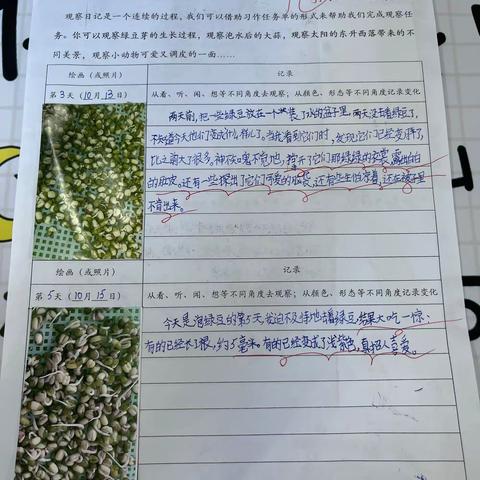 观察日记是一个连续的过程，我们可以借助习作任务单的形式来帮助我们完成观察任
务。你可以观察绿豆芽的生长过程，观察泡水后的大蒜，观察太阳的东升西落带来的不
同美景，观察小动物可爱又调皮的一面……
绘画（或照片）
记录
第3天（10月13日）
从看、听、闻、想等不同角度去观察；从颜色、形态等不同角度记录变化
两天前，把一些绿豆放在一个装了水的盆子里，两天没去看绿豆了，
不知道今天他们变成什么样儿了。当我看到它们时，发现它们已经变胖了，
比之前大了很多，神不知鬼不觉地，撑开了它们那绿绿的衣裳，露出白白
的肚皮。还有一些探出了它们可爱的脑袋，还有些生怕害羞，还在被子里
不肯出来。
绘画（或照片）
记录
第5天（10月15日）
从看、听、闻、想等不同角度去观察；从颜色、形态等不同角度记录变化
今天是泡绿豆的第5天，我迫不及待地去看绿豆，结果大吃一惊：
有的已经长了根，约5毫米。有的已经变成了浅紫色，真招人喜爱。